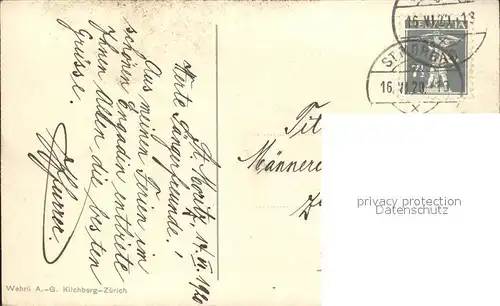 St. Moritz, 14. VI. 1920
Werte Sängerfreunde!
Aus meinen Ferien im
schönen Engadin entbiete
Ihnen Allen die besten
Grüsse.
16.VI.20.-13
ST. MORITZ
16.VI.20.
7½
Tit.
Männerc
privacy protection
Datenschutz
Wehrli A.-G. Kilchberg-Zürich